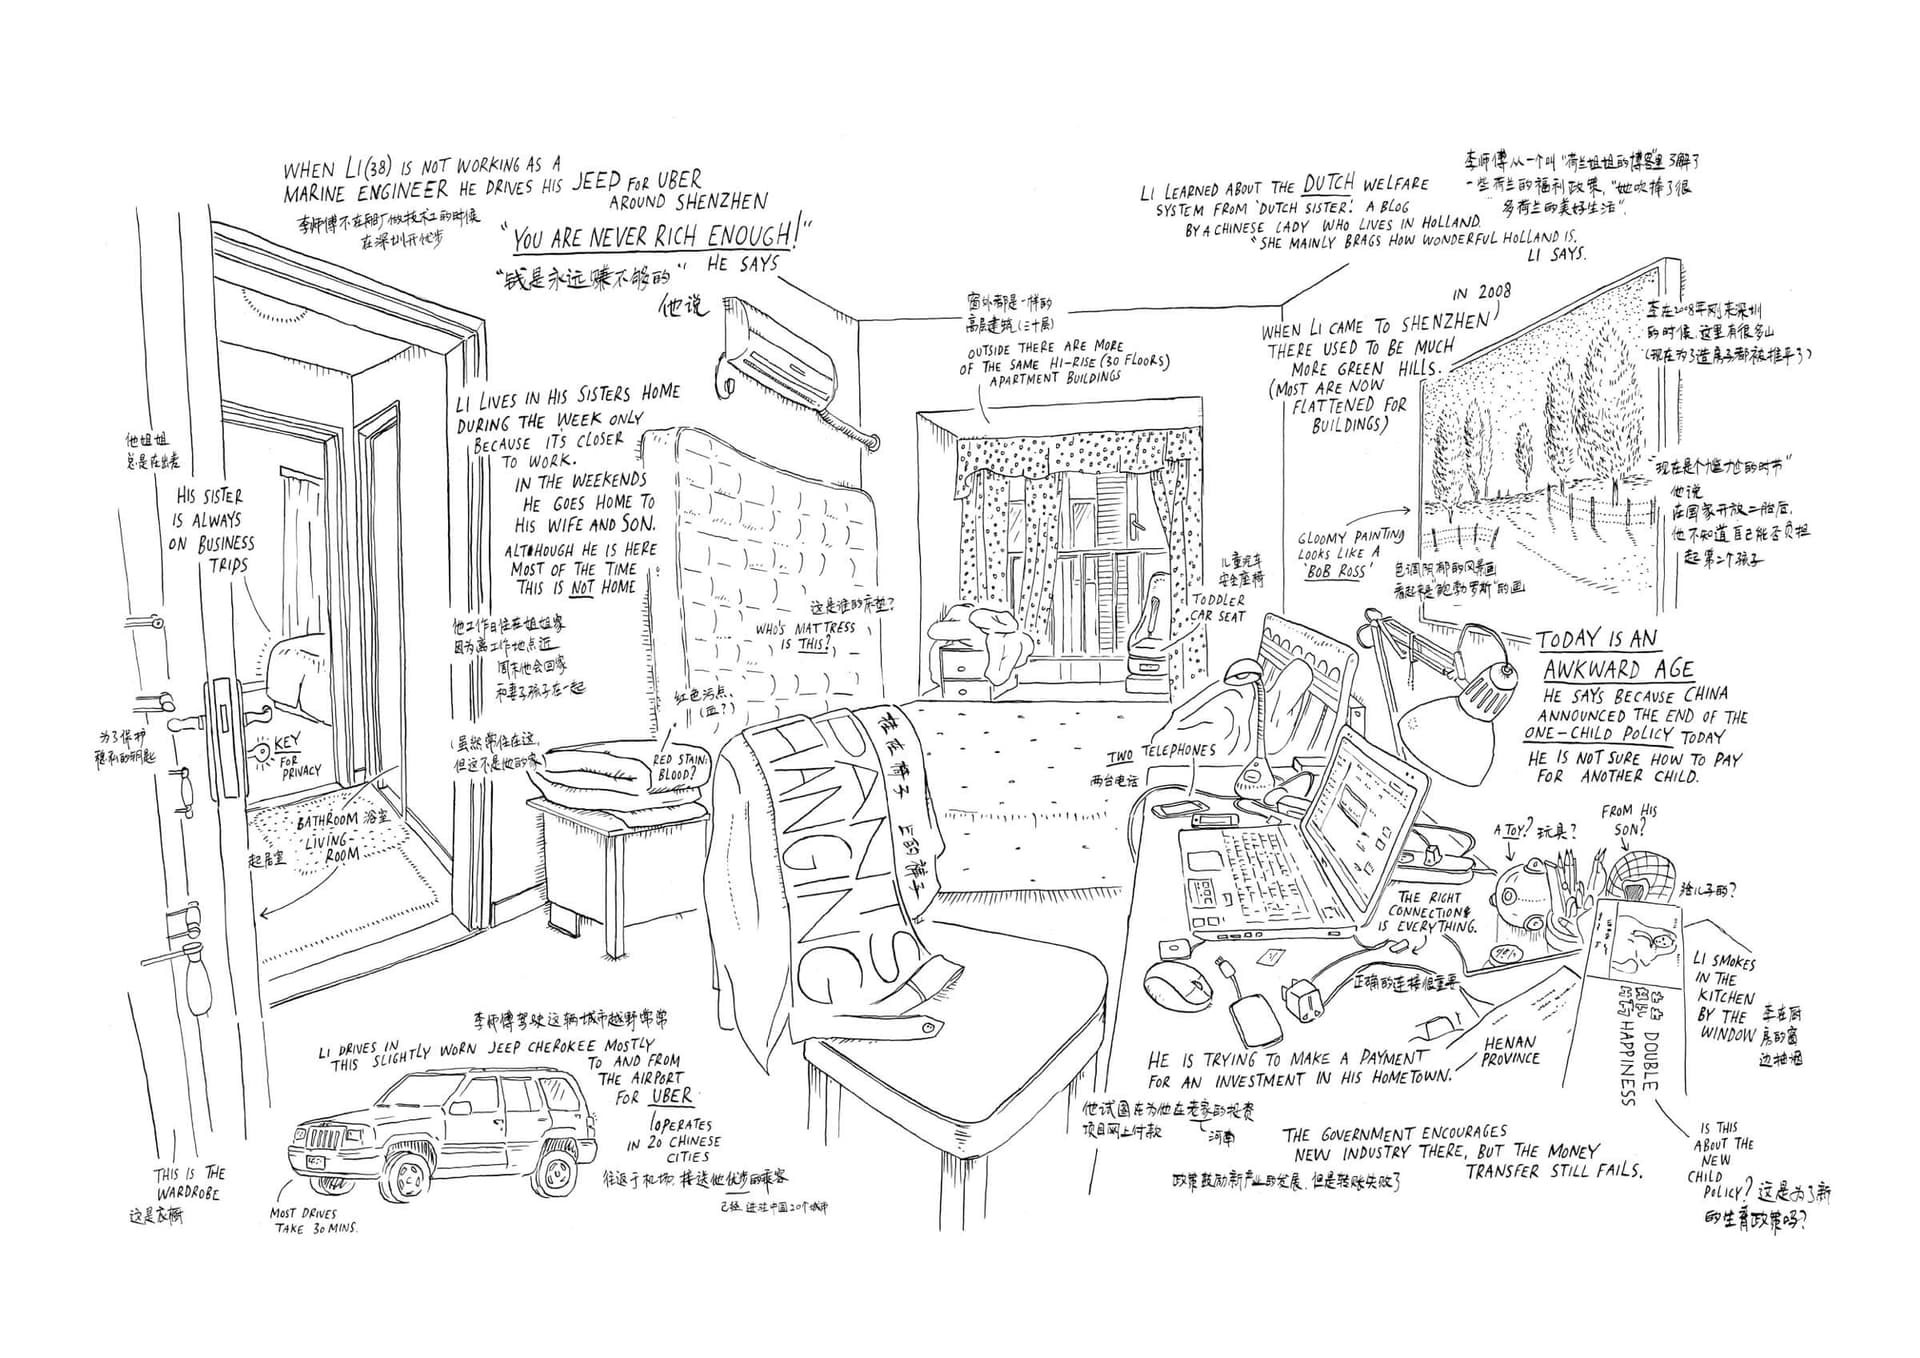 WHEN LI(38) IS NOT WORKING AS A
MARINE ENGINEER HE DRIVES HIS JEEP FOR UBER
AROUND SHENZHEN
李师傅不在船厂做技术工的时候
在深圳开优步
"YOU ARE NEVER RICH ENOUGH!"
HE SAYS
"钱是永远赚不够的"
他说
LI LEARNED ABOUT THE DUTCH WELFARE
SYSTEM FROM 'DUTCH SISTER'. A BLOG
BY A CHINESE LADY WHO LIVES IN HOLLAND.
"SHE MAINLY BRAGS HOW WONDERFUL HOLLAND IS.
LI SAYS.
李师傅从一个叫"荷兰姐姐的博客"里了解了
一些荷兰的福利政策, "她吹捧了很
多荷兰的美好生活".
IN 2008
WHEN LI CAME TO SHENZHEN
THERE USED TO BE MUCH
MORE GREEN HILLS.
(MOST ARE NOW
FLATTENED FOR
BUILDINGS)
李在2008年刚来深圳
的时候,这里有很多山
(现在为了造房子都被推平了)
窗外都是一样的
高层建筑(三十层)
OUTSIDE THERE ARE MORE
OF THE SAME HI-RISE (30 FLOORS)
APARTMENT BUILDINGS
LI LIVES IN HIS SISTERS HOME
DURING THE WEEK ONLY
BECAUSE IT'S CLOSER
TO WORK.
IN THE WEEKENDS
HE GOES HOME TO
HIS WIFE AND SON.
ALTHOUGH HE IS HERE
MOST OF THE TIME
THIS IS NOT HOME
他工作日住在姐姐家
因为离工作地点近
周末他会回家
和妻子孩子在一起
(虽然常住在这,
但这不是他的家
他姐姐
总是在出差
HIS SISTER
IS ALWAYS
ON BUSINESS
TRIPS
为了保护
隐私的钥匙
KEY
FOR
PRIVACY
BATHROOM 浴室
LIVING-
ROOM
起居室
这是谁的床垫?
WHO'S MATTRESS
IS THIS?
红色污点,
(血?)
RED STAIN:
BLOOD?
儿童汽车
安全座椅
TODDLER
CAR SEAT
GLOOMY PAINTING
LOOKS LIKE A
'BOB ROSS'
色调阴郁的风景画
看起来是"鲍勃罗斯"的画
"现在是个尴尬的时节"
他说
在国家开放二胎后,
他不知道自己能否负担
起第二个孩子
TODAY IS AN
AWKWARD AGE
HE SAYS BECAUSE CHINA
ANNOUNCED THE END OF THE
ONE-CHILD POLICY TODAY
HE IS NOT SURE HOW TO PAY
FOR ANOTHER CHILD.
TWO TELEPHONES
两台电话
PANTS
HANGING
挂在椅子上的裤子
A TOY? 玩具?
FROM HIS
SON?
给儿子的?
THE RIGHT
CONNECTIONS
IS EVERYTHING.
正确的连接很重要
LI SMOKES
IN THE
KITCHEN
BY THE
WINDOW
李在厨
房的窗
边抽烟
DOUBLE
HAPPINESS
IS THIS
ABOUT THE
NEW
CHILD
POLICY? 这是为了新
的生育政策吗?
HE IS TRYING TO MAKE A PAYMENT
FOR AN INVESTMENT IN HIS HOMETOWN.
HENAN
PROVINCE
他试图在为他在老家的投资
项目网上付款
河南
THE GOVERNMENT ENCOURAGES
NEW INDUSTRY THERE, BUT THE MONEY
TRANSFER STILL FAILS.
政策鼓励新产业的发展,但是转账失败了
李师傅驾驶这辆城市越野常常
LI DRIVES IN
THIS SLIGHTLY WORN JEEP CHEROKEE MOSTLY
TO AND FROM
THE AIRPORT
FOR UBER
(OPERATES
IN 20 CHINESE
CITIES
往返于机场,接送他优步的乘客
已经进驻中国20个城市
MOST DRIVES
TAKE 30 MINS.
THIS IS THE
WARDROBE
这是衣橱